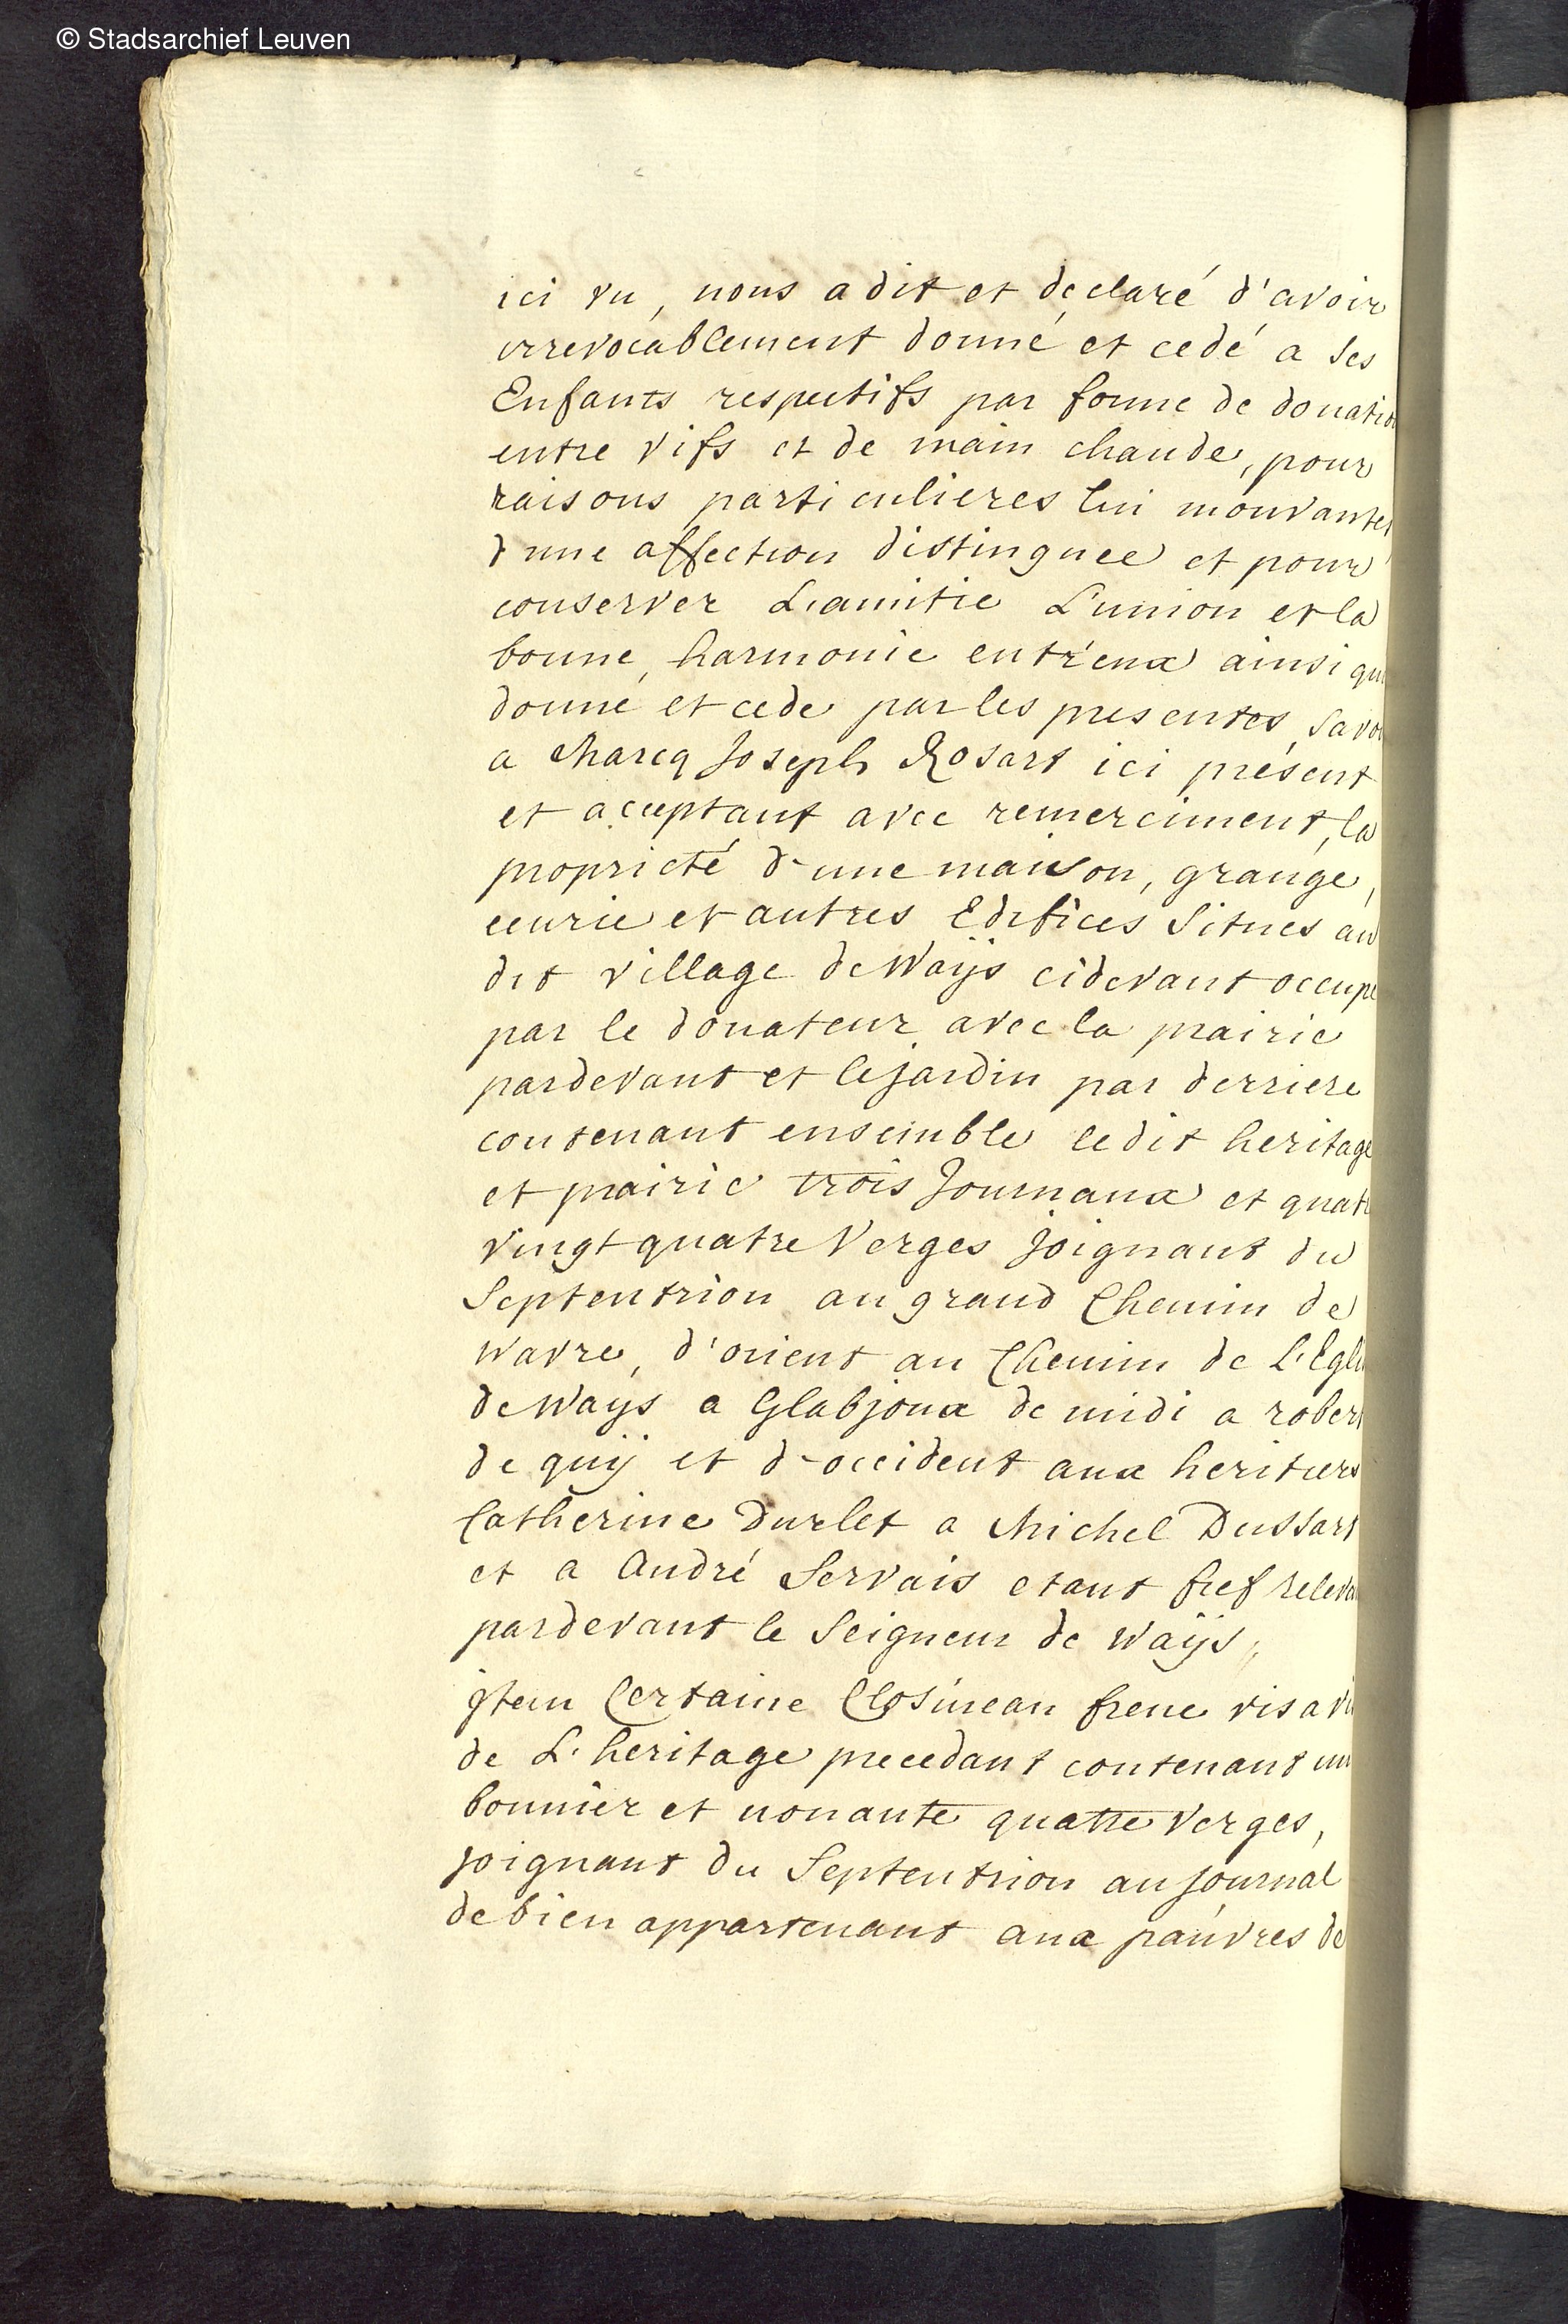 © Stadsarchief Leuven
ici vu, nous a dit et declaré d'avoir
irrevocablement donné et cedé a ses
Enfants respectifs par forme de donatio
entre vifs et de main chaude, pour
raisons particulieres lui mouvantes
d'une affection distinguee et pour
conserver L'amitie L'union et la
bonne harmonie entr'eux ainsi qu
donne et cede par les presentes, savo
a Marcq Joseph Rosart ici présent
et aceptant avec remerciment, la
proprieté d'une maison, grange,
ecurie et autres Edifices situes au
dit village de Waÿs cidevant occupé
par le donateur avec la prairie
pardevant et le jardin par derriere
contenant ensemble ledit heritage
et prairie trois Journaux et quat
vingt quatre Verges joignant du
Septentrion au grand Chemin de
Wavre, d'orient au Chemin de L'Egli
de Waÿs a Glabjoux de midi a robert
de quÿ et d'occident aux heritiers
Catherine Durlet a Michel Dussart
et a André Servais etant fief releva
pardevant le Seigneur de Waÿs,
jtem Certaine Closineau frene vis a vi
de L'heritage precedant contenant un
bonnier et nonante quattre Verges,
joignant du Septentrion au journal
de bien appartenant aux pauvres de